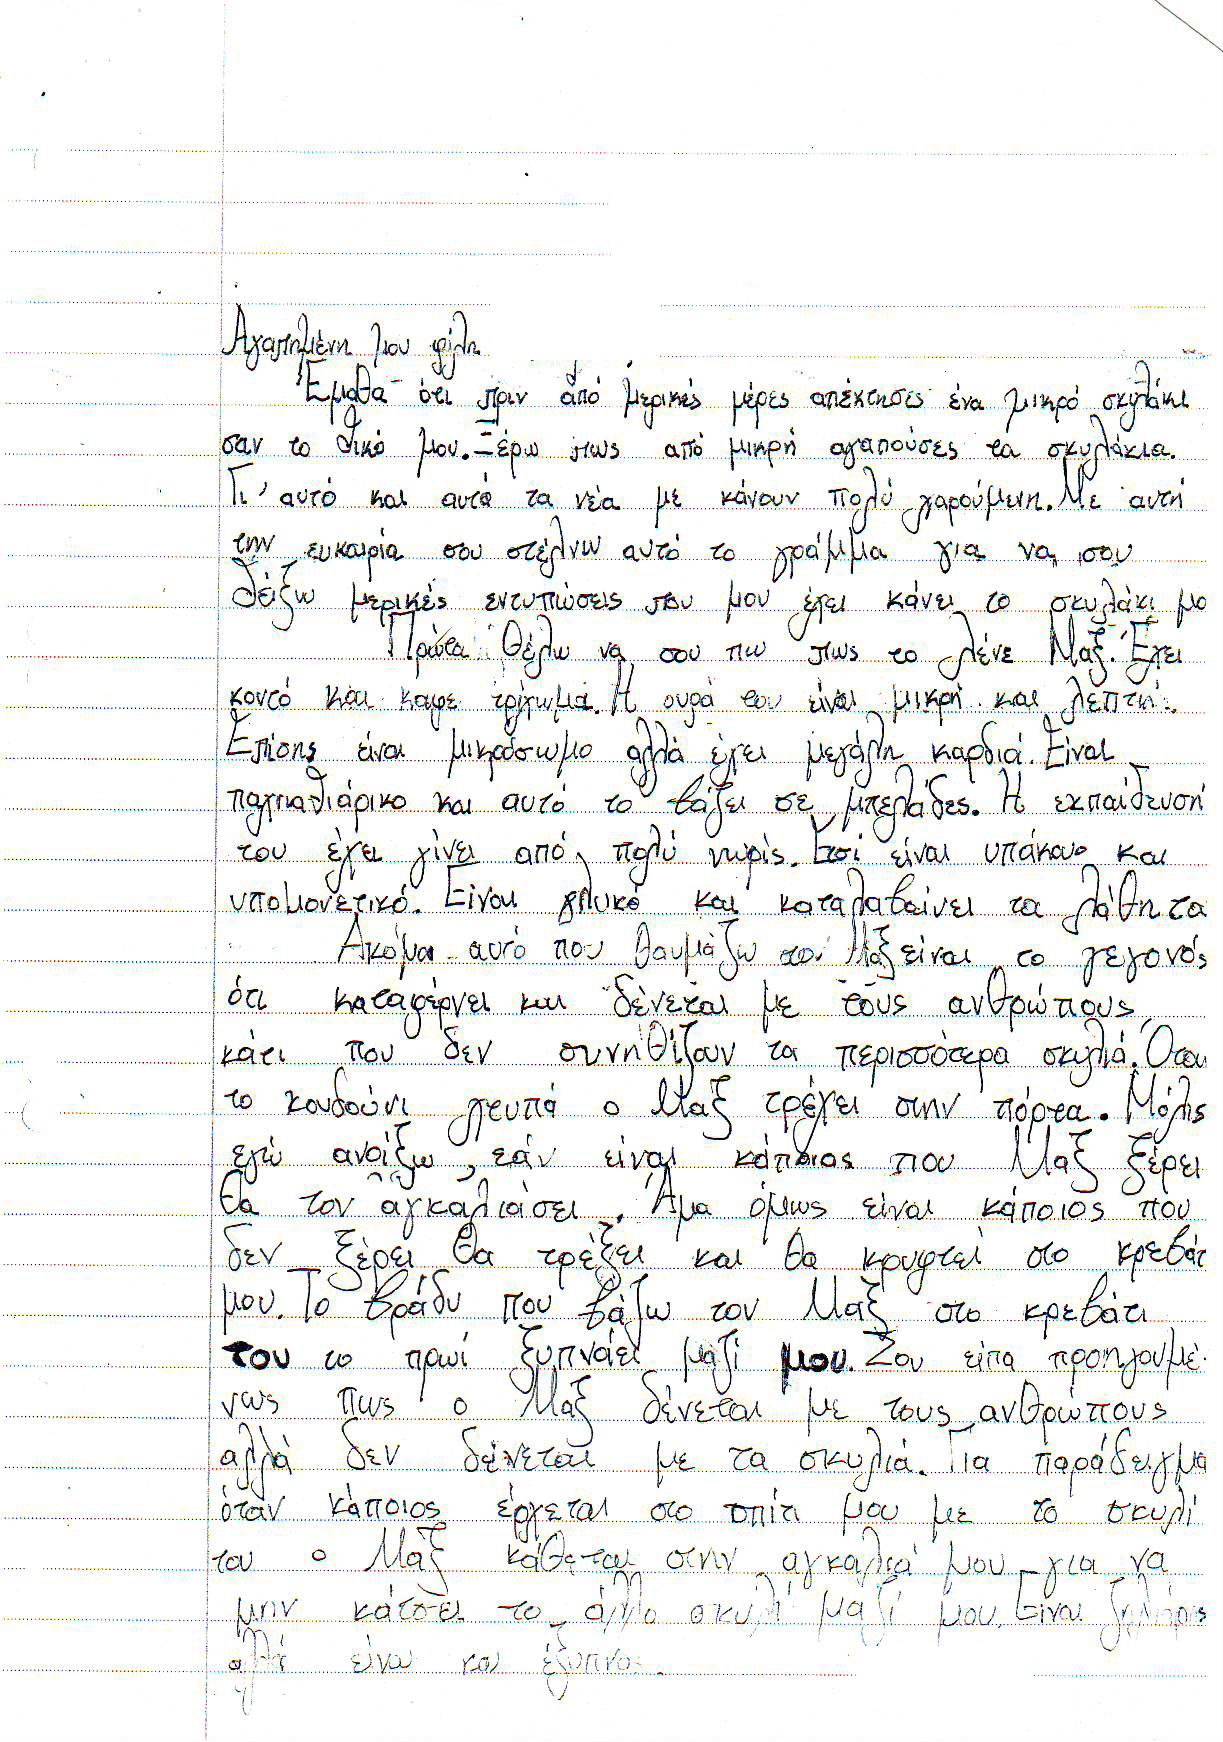 Αγαπημένη μου φίλη
Έμαθα ότι πριν από μερικές μέρες απέκτησες ένα μικρό σκυλάκι
σαν το δικό μου. Ξέρω πως από μικρή αγαπούσες τα σκυλάκια.
Γι' αυτό και αυτά τα νέα με κάνουν πολύ χαρούμενη. Με αυτή
την ευκαιρία σου στέλνω αυτό το γράμμα για να σου
δείξω μερικές εντυπώσεις που μου έχει κάνει το σκυλάκι μο
Πρώτα θέλω να σου πω πως το λένε Μαξ. Έχει
κοντό και καφέ τρίχωμα. Η ουρά του είναι μικρή και λεπτή.
Επίσης είναι μικρόσωμο αλλά έχει μεγάλη καρδιά. Είναι
παιχνιδιάρικο και αυτό το βάζει σε μπελάδες. Η εκπαίδευσή
του έχει γίνει από πολύ νωρίς. Έτσι είναι υπάκουο και
υπομονετικό. Είναι γλυκό και καταλαβαίνει τα λάθη τα
Ακόμα αυτό που θαυμάζω στο Μαξ είναι το γεγονός
ότι καταφέρνει και δένεται με τους ανθρώπους
κάτι που δεν συνηθίζουν τα περισσότερα σκυλιά. Όταν
το κουδούνι χτυπά ο Μαξ τρέχει στην πόρτα. Μόλις
εγώ ανοίξω, εάν είναι κάποιος που Μαξ ξέρει
θα τον αγκαλιάσει. Άμα όμως είναι κάποιος που
δεν ξέρει θα τρέξει και θα κρυφτεί στο κρεβάτ
μου. Το βράδυ που βάζω τον Μαξ στο κρεβάτι
του το πρωί ξυπνάει μαζί μου. Σου είπα προηγουμέ-
νως πως ο Μαξ δένεται με τους ανθρώπους
αλλά δεν δένεται με τα σκυλιά. Για παράδειγμα
όταν κάποιος έρχεται στο σπίτι μου με το σκυλί
του ο Μαξ κάθεται στην αγκαλιά μου για να
μην κάτσει το άλλο σκυλί μαζί μου. Είναι ζηλιάρης
αλλά είναι και έξυπνος.